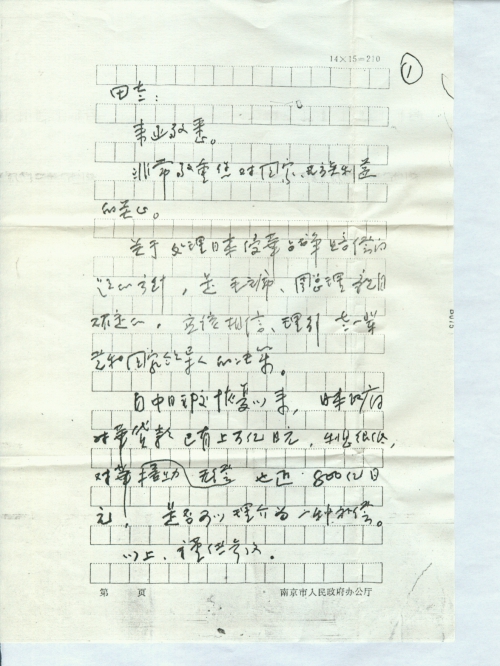 14×15=210
①
田老:
来业敬悉。
非常敬重您对国家、民族利益
的关心。
关于处理日本侵华战争赔偿的
方针, 是毛主席、周总理亲自
决定的, 应该相信、理到老一辈
党和国家领导人的决策。
自中日邦交恢复以来, 日本政府
对华贷款已有上万亿日元, 利息很低,
对华援助无偿也近800亿日
元, 是否可以理介为一种补偿。
以上, 谨供参考。
第 页
南京市人民政府办公厅